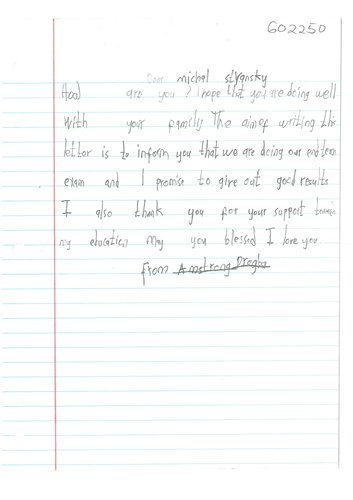 602250
Dear michal stransky
How are you? I hope that you are doing well
with your family The aim of writing this
letter is to inform you that we are doing our end term
exam and I promise to give out good results
I also thank you for your support towards
my education may you blessed I love you
from Amstrong Drogba